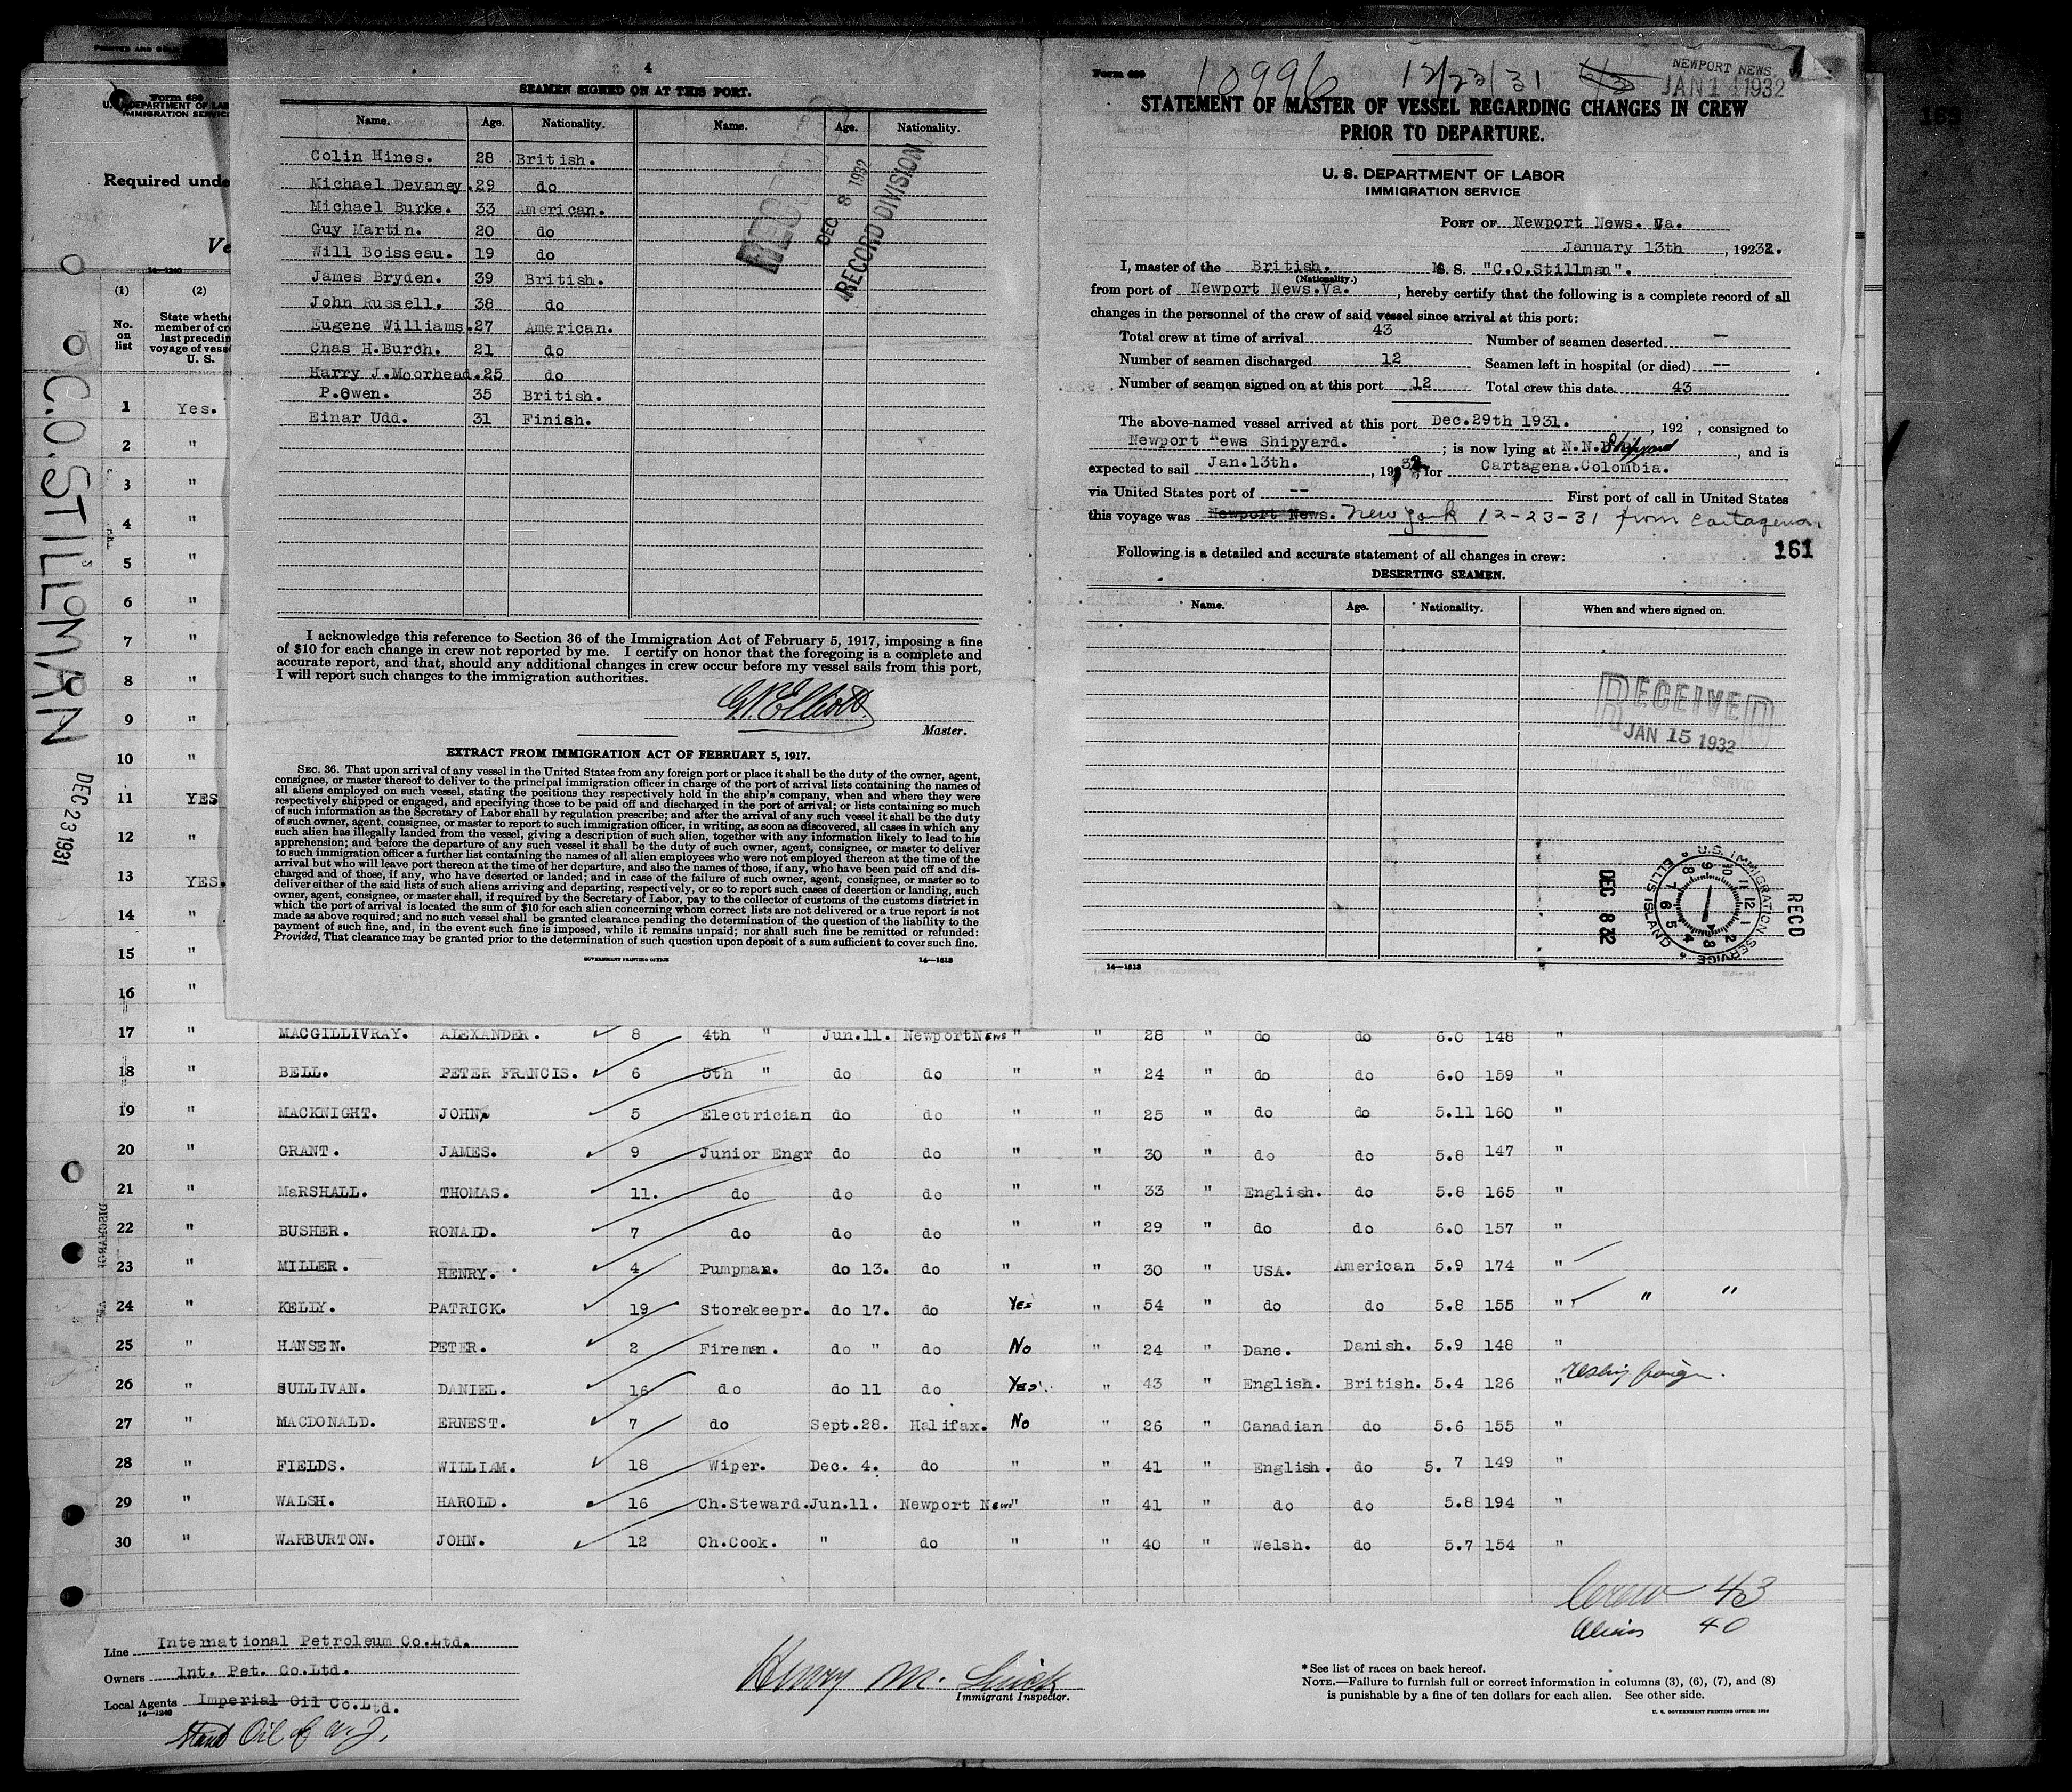 4
SEAMEN SIGNED ON AT THIS PORT.
Name. Age. Nationality. Name. Age. Nationality.
Colin Hines. 28 British.
Michael Devaney. 29 do
Michael Burke. 33 American.
Guy Martin. 20 do
Will Boisseau. 19 do
James Bryden. 39 British.
John Russell. 38 do
Eugene Williams. 27 American.
Chas H.Burch. 21 do
Harry J.Moorhead. 25 do
P.Owen. 35 British.
Einar Udd. 31 Finish.
RECEIVED
DEC 8 1932
RECORD DIVISION
I acknowledge this reference to Section 36 of the Immigration Act of February 5, 1917, imposing a fine
of $10 for each change in crew not reported by me. I certify on honor that the foregoing is a complete and
accurate report, and that, should any additional changes in crew occur before my vessel sails from this port,
I will report such changes to the immigration authorities.
Master.
EXTRACT FROM IMMIGRATION ACT OF FEBRUARY 5, 1917.
SEC. 36. That upon arrival of any vessel in the United States from any foreign port or place it shall be the duty of the owner, agent,
consignee, or master thereof to deliver to the principal immigration officer in charge of the port of arrival lists containing the names of
all aliens employed on such vessel, stating the positions they respectively hold in the ship's company, when and where they were
respectively shipped or engaged, and specifying those to be paid off and discharged in the port of arrival; or lists containing so much
of such information as the Secretary of Labor shall by regulation prescribe; and after the arrival of any such vessel it shall be the duty
of such owner, agent, consignee, or master to report to such immigration officer, in writing, as soon as discovered, all cases in which any
such alien has illegally landed from the vessel, giving a description of such alien, together with any information likely to lead to his
apprehension; and before the departure of any such vessel it shall be the duty of such owner, agent, consignee, or master to deliver
to such immigration officer a further list containing the names of all alien employees who were not employed thereon at the time of the
arrival but who will leave port thereon at the time of her departure, and also the names of those, if any, who have been paid off and dis-
charged and of those, if any, who have deserted or landed; and in case of the failure of such owner, agent, consignee, or master so to
deliver either of the said lists of such aliens arriving and departing, respectively, or so to report such cases of desertion or landing, such
owner, agent, consignee, or master shall, if required by the Secretary of Labor, pay to the collector of customs of the customs district in
which the port of arrival is located the sum of $10 for each alien concerning whom correct lists are not delivered or a true report is not
made as above required; and no such vessel shall be granted clearance pending the determination of the question of the liability to the
payment of such fine, and, in the event such fine is imposed, while it remains unpaid; nor shall such fine be remitted or refunded:
Provided, That clearance may be granted prior to the determination of such question upon deposit of a sum sufficient to cover such fine.
GOVERNMENT PRINTING OFFICE 14—1613
Form 689 10996 12/23/31
NEWPORT NEWS
JAN 14 1932
STATEMENT OF MASTER OF VESSEL REGARDING CHANGES IN CREW
PRIOR TO DEPARTURE.
U. S. DEPARTMENT OF LABOR
IMMIGRATION SERVICE
PORT OF Newport News. Va.
January 13th , 19232.
I, master of the British. M.S. "C.O.Stillman".
(Nationality.)
from port of Newport News.Va. , hereby certify that the following is a complete record of all
changes in the personnel of the crew of said vessel since arrival at this port:
Total crew at time of arrival 43 Number of seamen deserted —
Number of seamen discharged 12 Seamen left in hospital (or died) --
Number of seamen signed on at this port 12 Total crew this date 43
The above-named vessel arrived at this port Dec.29th 1931. , 192 , consigned to
Newport News Shipyard. ; is now lying at N.N. Shipyard , and is
expected to sail Jan.13th. , 1932, for Cartagena.Colombia.
via United States port of -- First port of call in United States
this voyage was Newport News. New York 12-23-31 from Cartagena
161
Following is a detailed and accurate statement of all changes in crew:
DESERTING SEAMEN.
Name. Age. Nationality. When and where signed on.
RECEIVED
JAN 15 1932
U.S. IMMIGRATION SERVICE
ELLIS ISLAND
REC'D
DEC 8 32
14—1613
169
Form 680
U. DEPARTMENT OF LAB
IMMIGRATION SERVICE
Required unde
Ve
14—1240
(1) (2)
No. on list
State wheth
member of cr
last precedin
voyage of vess
U. S.
C.O. STILLMAN
DEC 23 1931
1 Yes.
2 "
3 "
4 "
5 "
6 "
7 "
8 "
9 "
10 "
11 YES
12 "
13 YES.
14 "
15 "
16 "
17 " MACGILLIVRAY. ALEXANDER. 8 4th " Jun.11. Newport News " " 28 " do do 6.0 148 "
18 " BELL. PETER FRANCIS. 6 5th " do do " " 24 " do do 6.0 159 "
19 " MACKNIGHT. JOHN. 5 Electrician do do " " 25 " do do 5.11 160 "
20 " GRANT. JAMES. 9 Junior Engr do do " " 30 " do do 5.8 147 "
21 " MaRSHALL. THOMAS. 11. do do do " " 33 " English. do 5.8 165 "
22 " BUSHER. RONALD. 7 do do do " " 29 " do do 6.0 157 "
23 " MILLER. HENRY. 4 Pumpman. do 13. do " " 30 " USA. American 5.9 174 "
24 " KELLY. PATRICK. 19 Storekeepr. do 17. do Yes " 54 " do do 5.8 155 " " "
25 " HANSEN. PETER. 2 Fireman. do " do No " 24 " Dane. Danish. 5.9 148 "
26 " SULLIVAN. DANIEL. 16 do do 11 do Yes " 43 " English. British. 5.4 126 "
27 " MACDONALD. ERNEST. 7 do Sept.28. Halifax. No " 26 " Canadian do 5.6 155 "
28 " FIELDS. WILLIAM. 18 Wiper. Dec. 4. do " " 41 " English. do 5. 7 149 "
29 " WALSH. HAROLD. 16 Ch.Steward. Jun.11. Newport News " " 41 " do do 5.8 194 "
30 " WARBURTON. JOHN. 12 Ch.Cook. " do " " 40 " Welsh. do 5.7 154 "
Crew 43
Aliens 40
Line International Petroleum Co.Ltd.
Owners Int. Pet. Co.Ltd.
Local Agents Imperial Oil Co.Ltd.
14—1240
Stand Oil of N.J.
Henry M.
Immigrant Inspector.
* See list of races on back hereof.
NOTE.—Failure to furnish full or correct information in columns (3), (6), (7), and (8)
is punishable by a fine of ten dollars for each alien. See other side.
U. S. GOVERNMENT PRINTING OFFICE: 1930